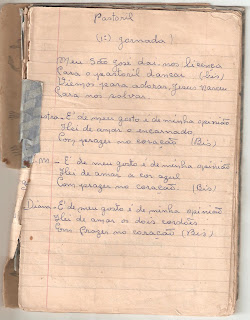 Pastoril
(1ª) jornada!
Meu São José dai-nos licença
Para o pastoril dansar (bis)
Viemos para adorar, Jesus nasceu
Para nos salvar.
Mestra - E' de meu gosto é de minha opinião
Hei de amar o encarnado,
Com prazer no coração (Bis)
C.M - E' de meu gosto é de minha opinião
Hei de amar a cor azul
Com prazer no coração. (Bis)
Diam - E' de meu gosto é de minha opinião
Hei de amar os dois cordões
Com prazer no coração (Bis)